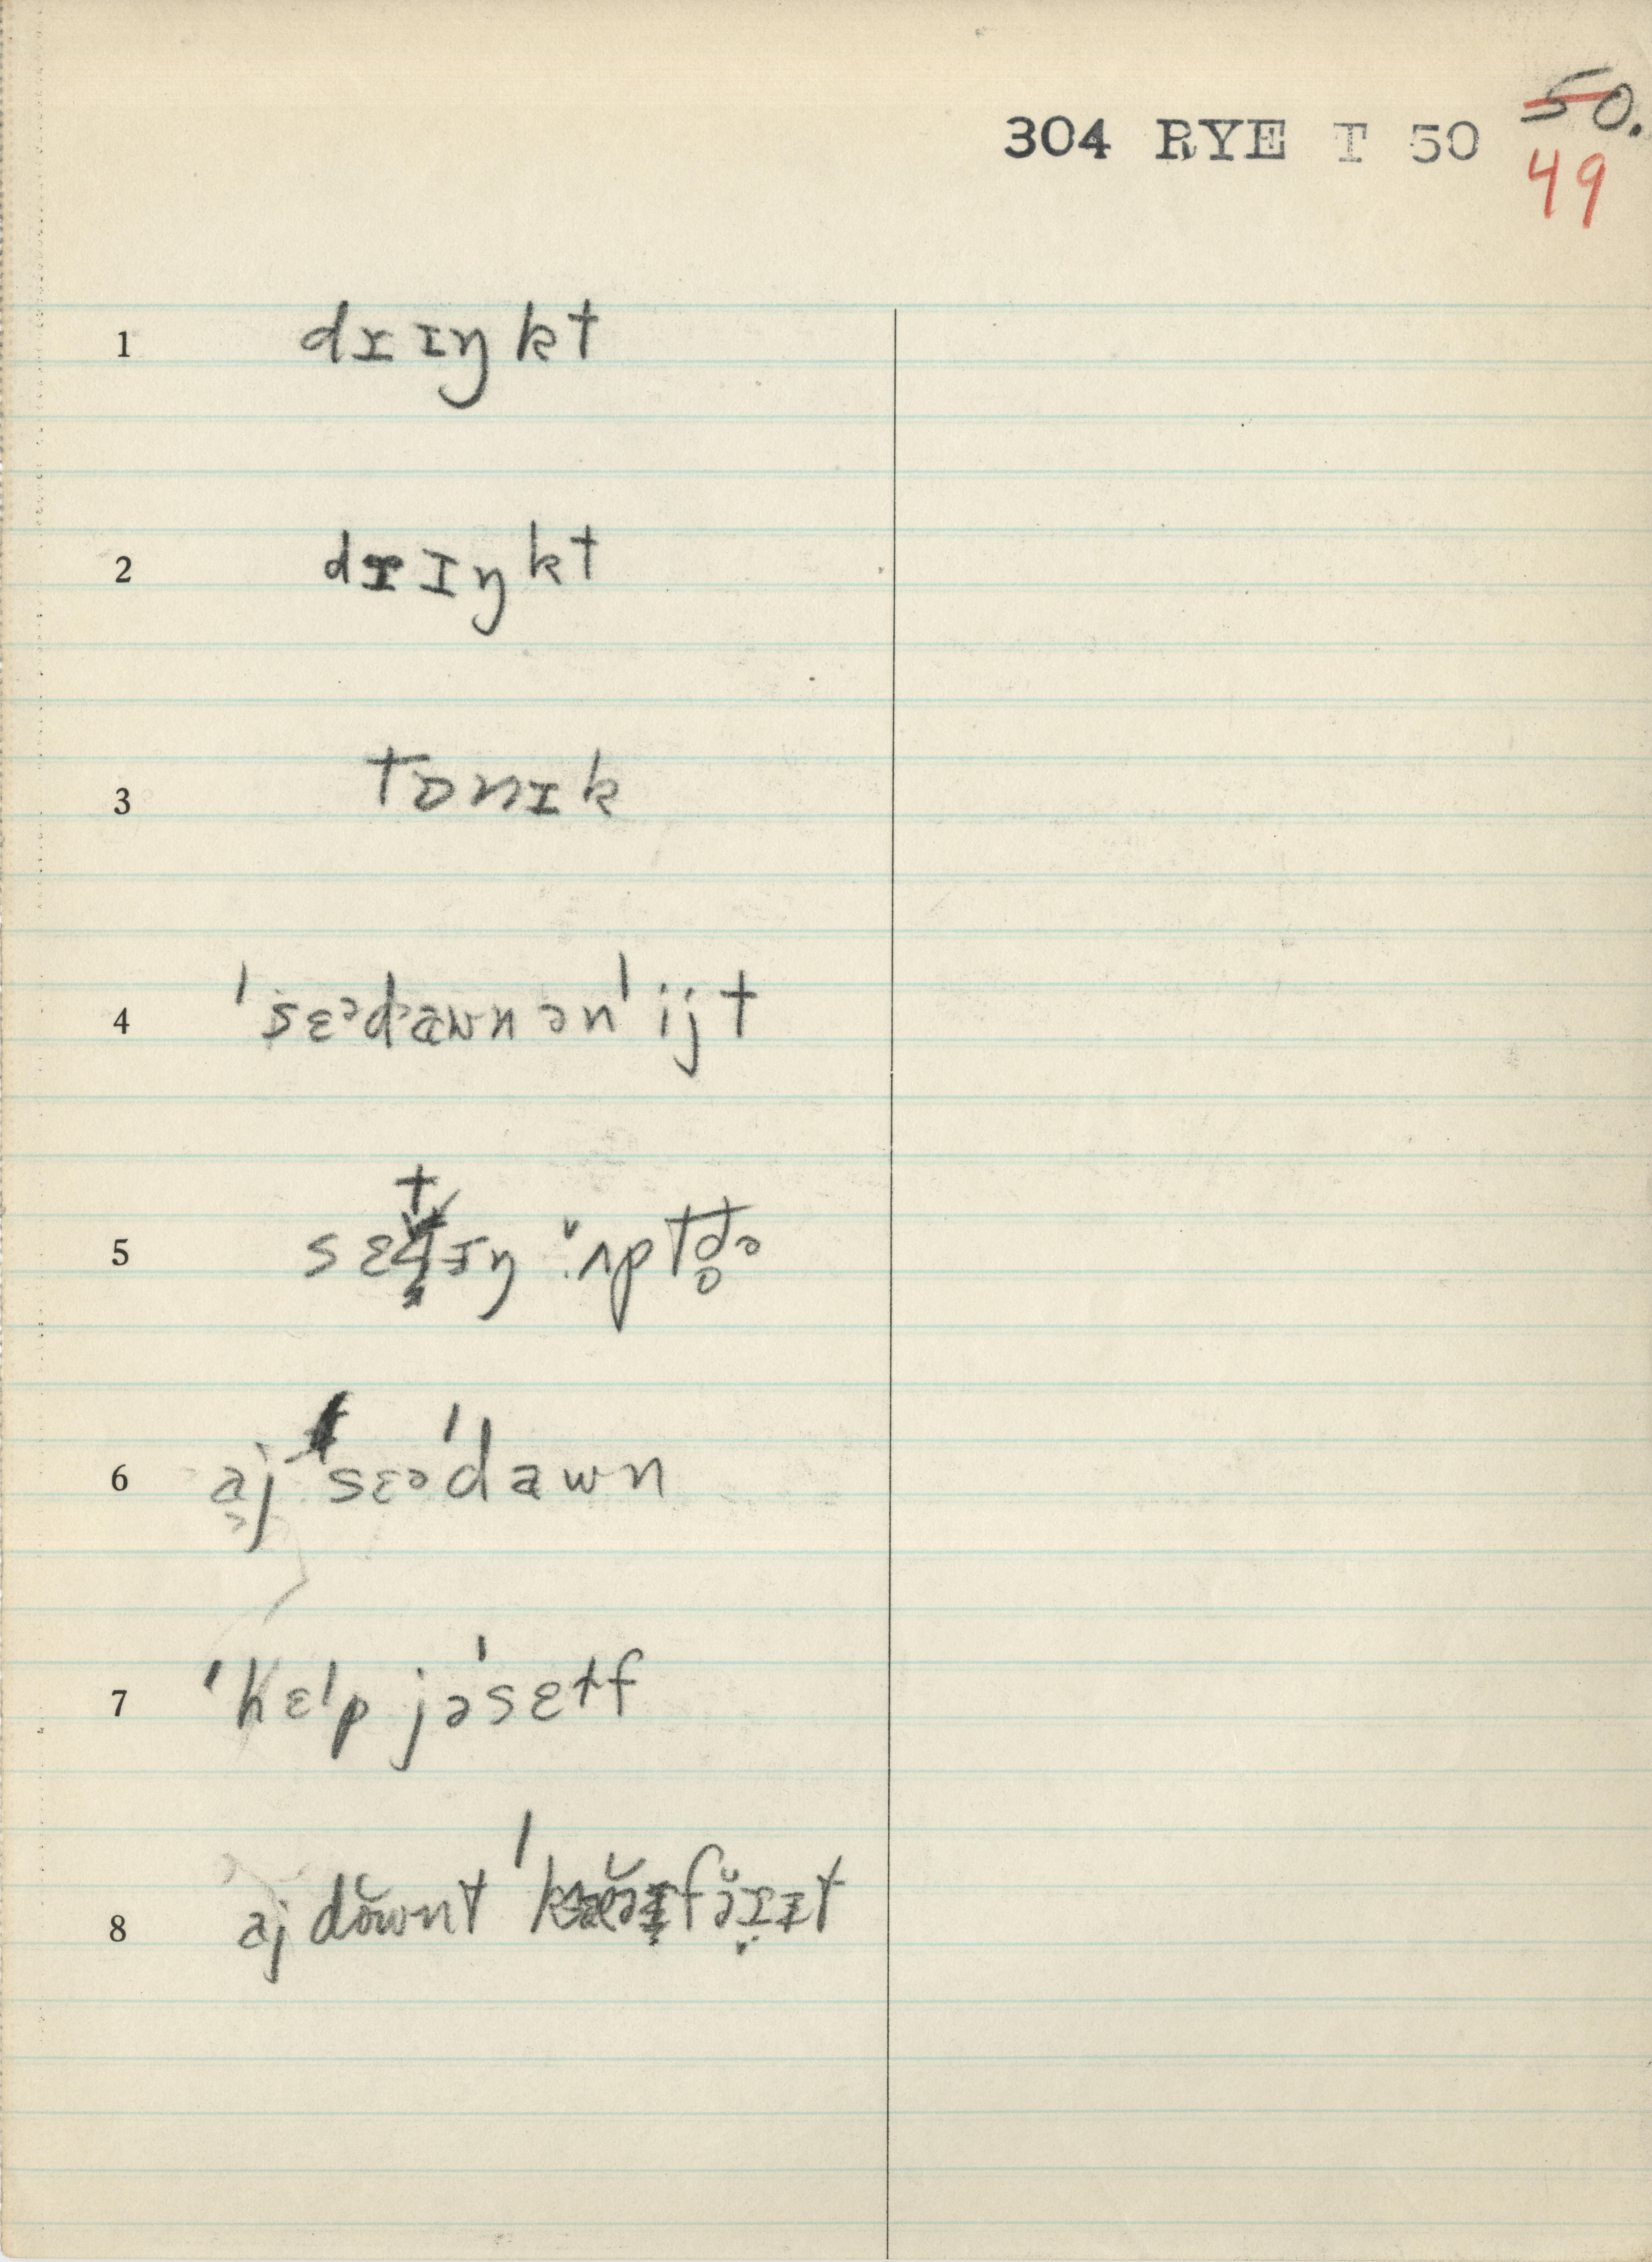 304 RYE T 50 50.
49
1 dɪɪŋkt
2 dɪɪŋkt
3 tɒnɪk
4 ˈsɛᵊdawnənˈijt
5 sɛtɪŋ ʌptd̥ə
6 aj sɛəˈdawn
7 ˈhɛlp jəˈsɛɫf
8 aj dŏwnt